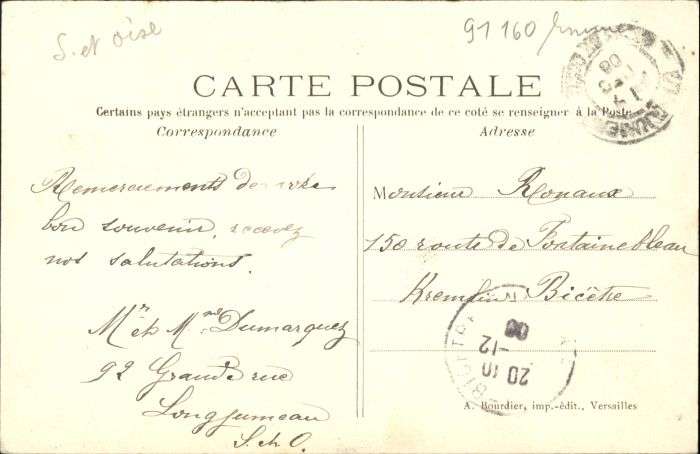 S. et Oise
91 160
CARTE POSTALE
Certains pays étrangers n'acceptant pas la correspondance de ce coté se renseigner à la Poste
Correspondance
Adresse
Remerciements de votre
bon souvenir, recevez
nos salutations.
Mr et Mme Dumarquez
92 Grande rue
Longjumeau
S. et O.
Monsieur Ronaux
150 route de Fontainebleau
Kremlin Bicêtre
20 10
-12
08
A. Bourdier, imp.-édit., Versailles